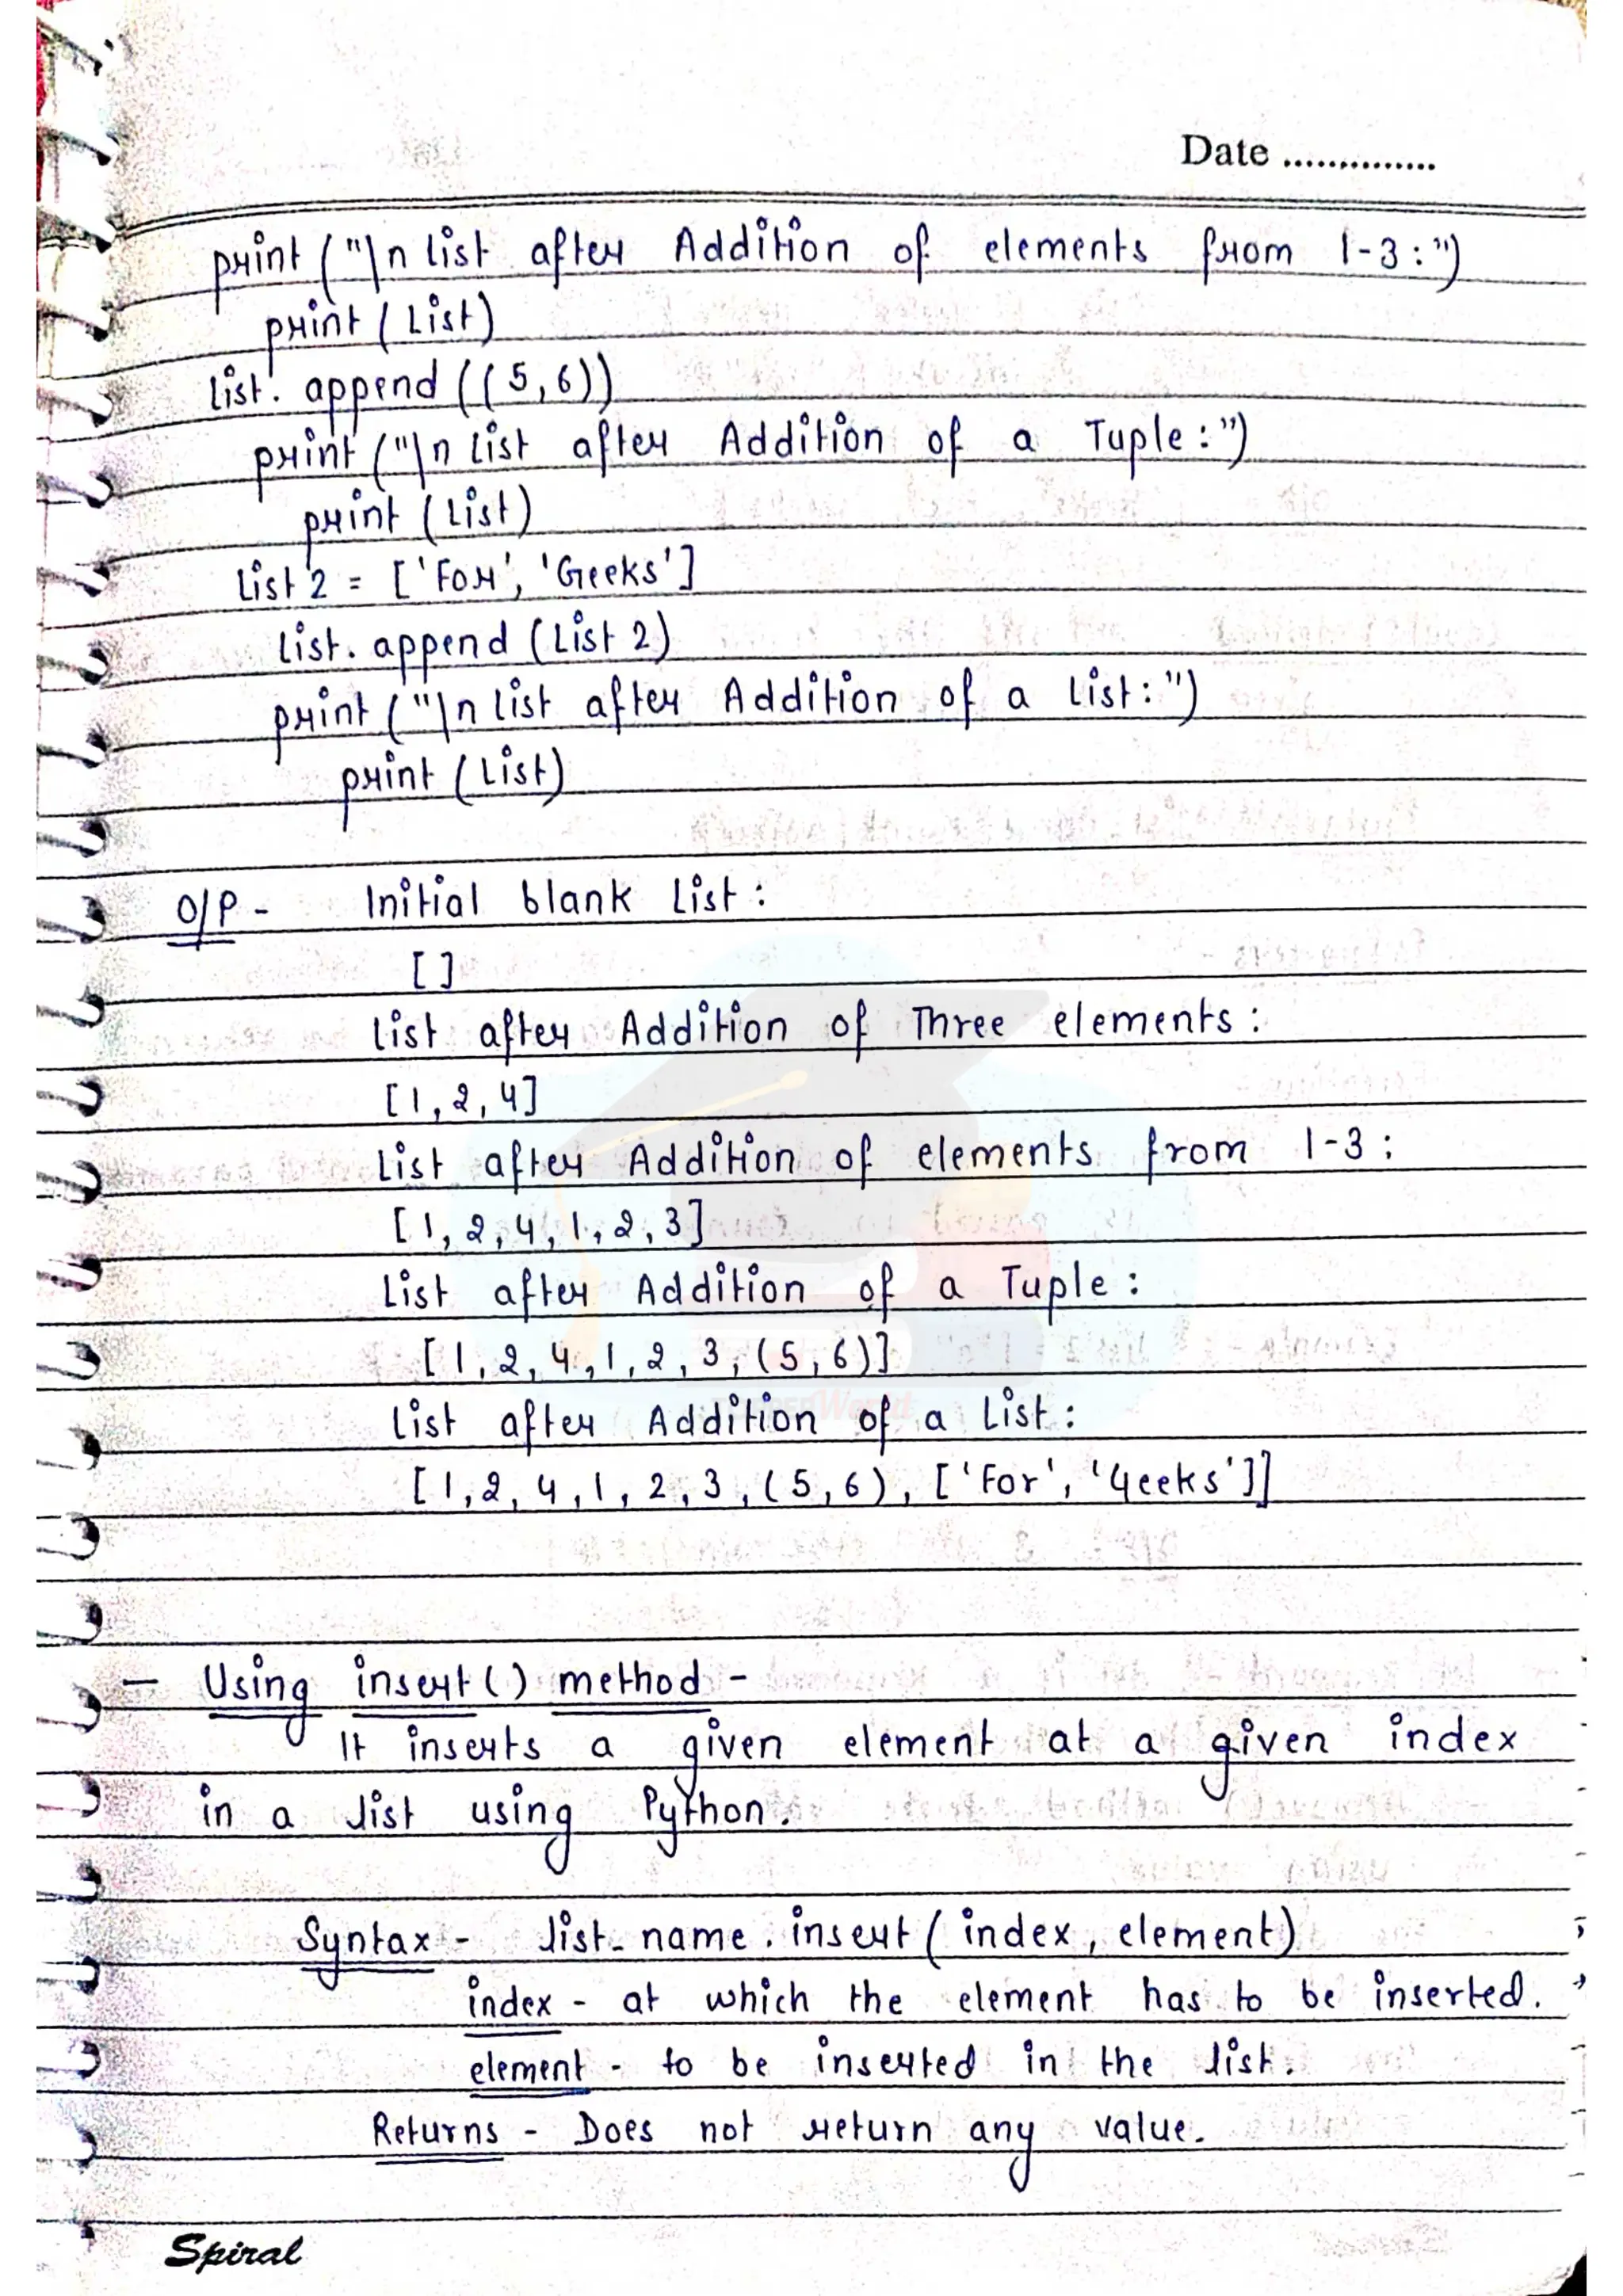 Date ..............
print ("\n list after Addition of elements from 1-3:")
print (List)
List. append ((5,6))
print ("\n List after Addition of a Tuple:")
print (List)
List 2 = ['For', 'Geeks']
List. append (List 2)
print ("\n List after Addition of a List:")
print (List)
O/P - Initial blank List:
[]
List after Addition of Three elements:
[1, 2, 4]
List after Addition of elements from 1-3:
[1, 2, 4, 1, 2, 3]
List after Addition of a Tuple:
[1, 2, 4, 1, 2, 3, (5, 6)]
List after Addition of a List:
[1, 2, 4, 1, 2, 3, (5, 6), ['For', 'Geeks']]
- Using insert() method -
It inserts a given element at a given index
in a list using Python.
Syntax - list_name. insert( index, element)
index - at which the element has to be inserted.
element - to be inserted in the list.
Returns - Does not return any value.
Spiral